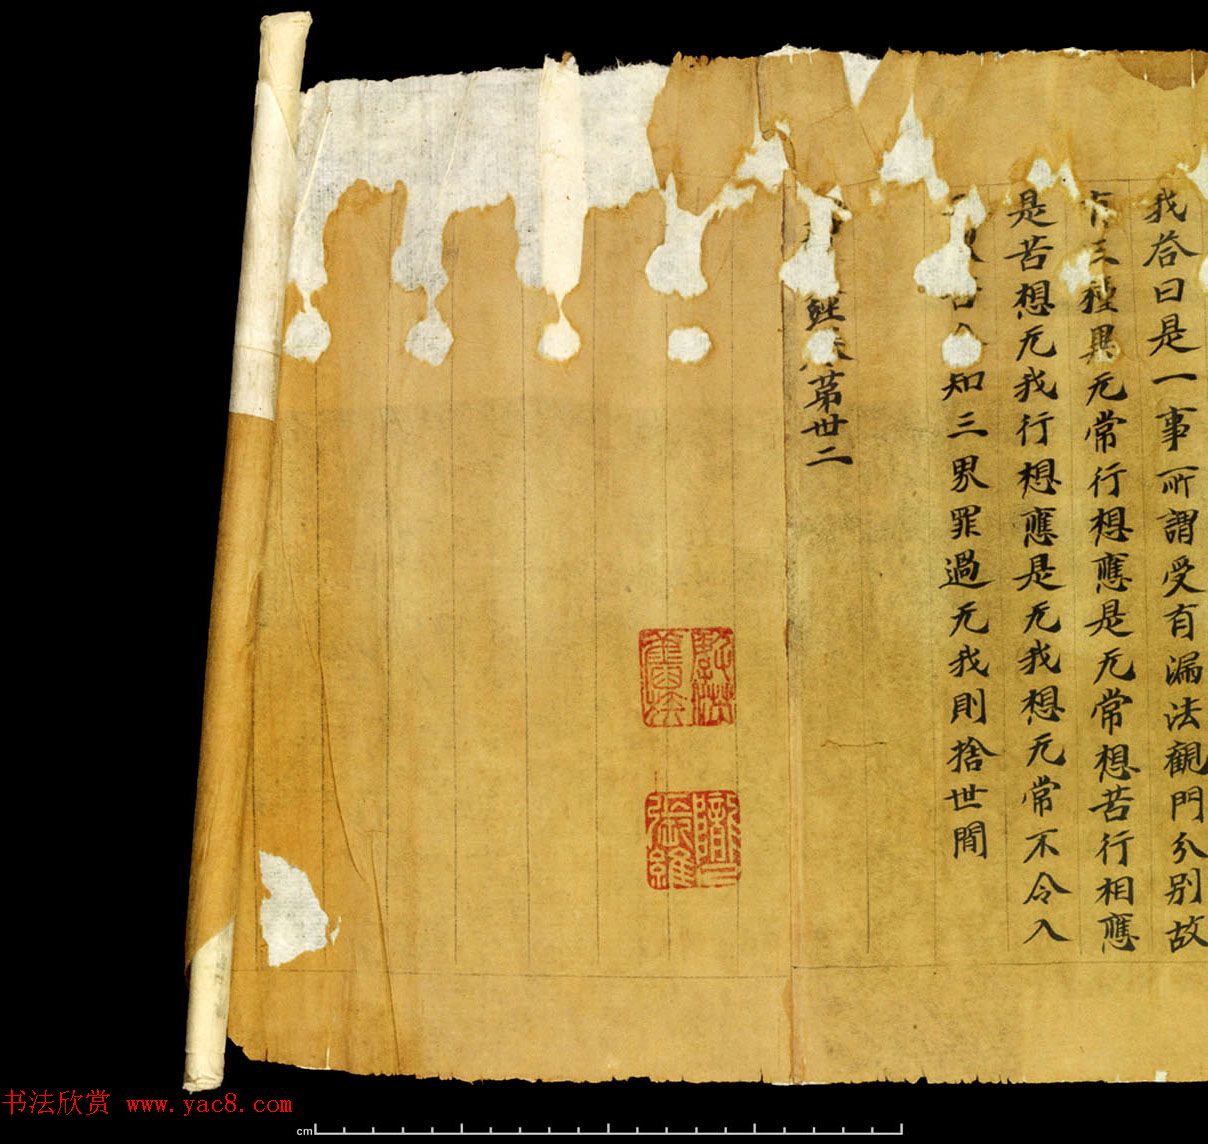 我荅曰是一事所謂受有漏法觀門分別故
三種異无常行想應是无常想苦行相應
是苦想无我行想應是无我想无常不令入
知三界罪過无我則捨世間
經第卅二
隴上張維
书法欣赏 www.yac8.com
cm